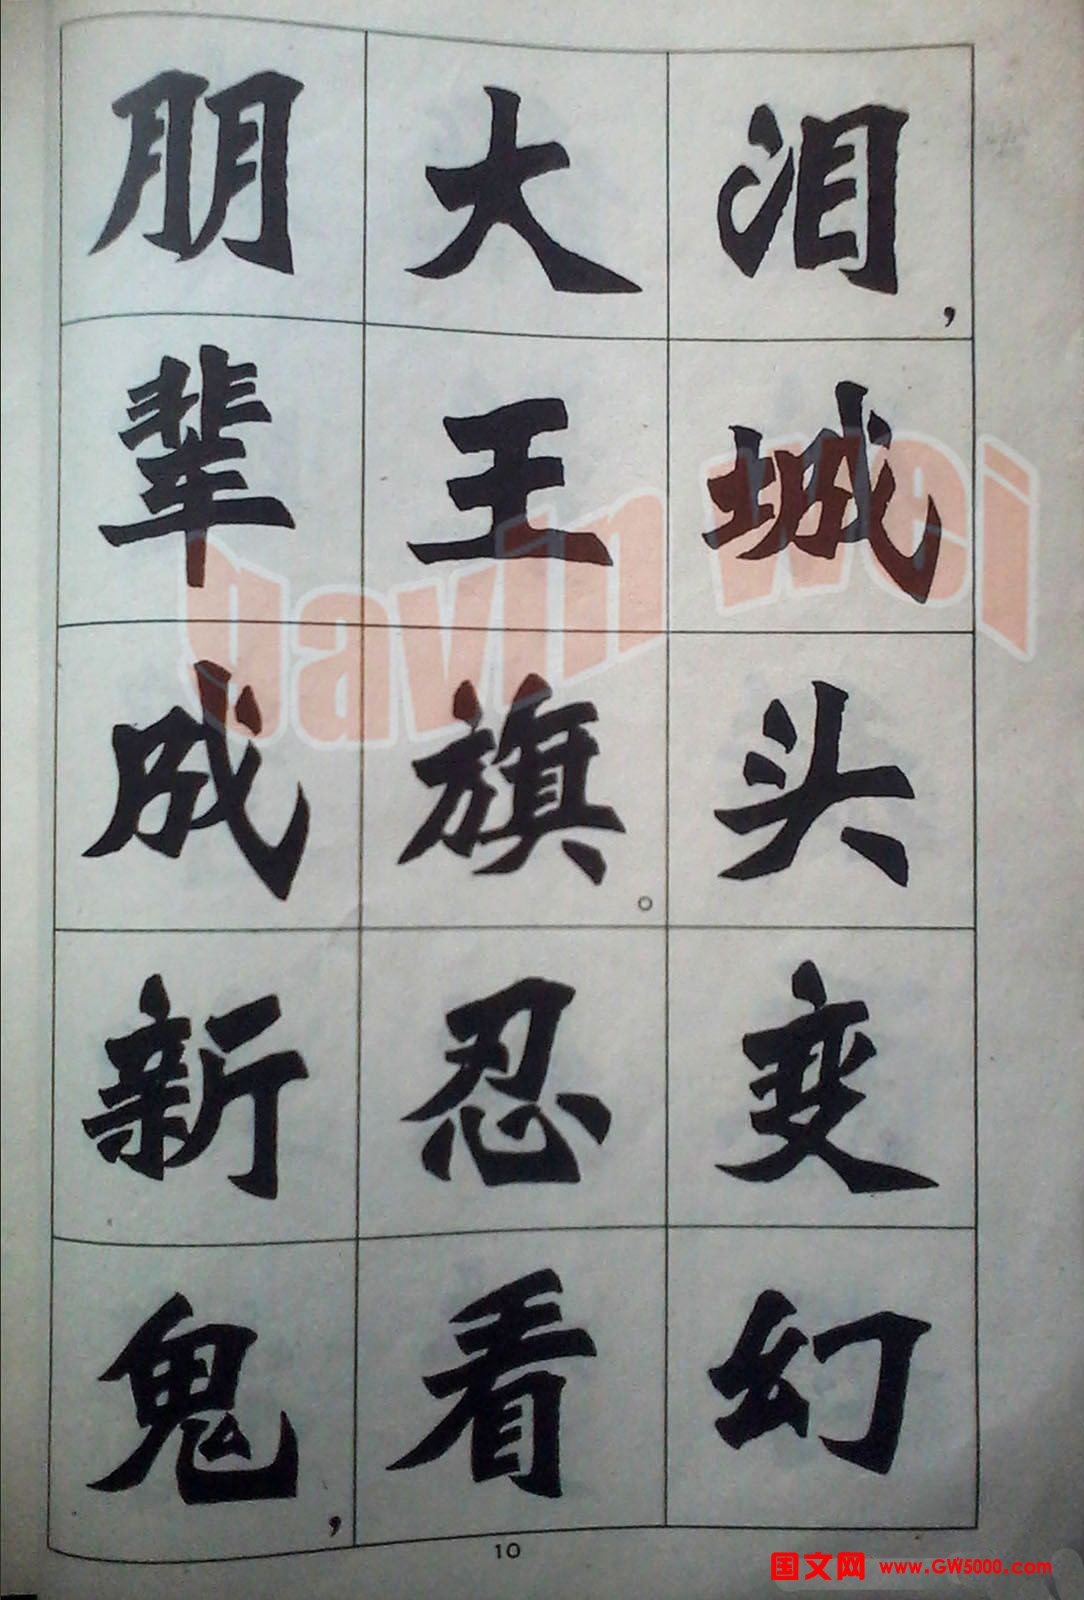 泪，城头变幻
大王旗。忍看
朋辈成新鬼，
gavin wei
10
国文网 www.GW5000.com